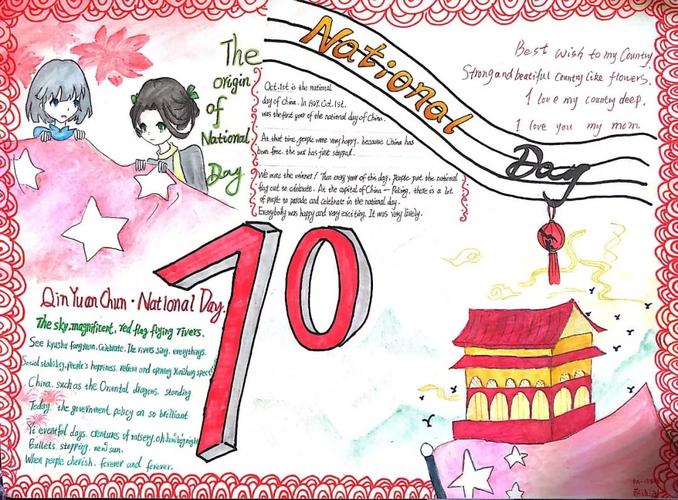 The
origin
of
National
Day
National
Day
Oct.1st is the national
day of China. In 1949. Oct.1st.
was the first year of the national day of China.
At that time, people were very happy. because China has
been free. the war has just stopped.
We were the winner! Then every year of this day, people put the national
flag out to celebrate. At the capital of China — Peking, there is a lot
of people to parade and celebrate in the national day.
Everybody was happy and very exciting. It was very lively.
Best wish to my Country
Strong and beatiful Country like flowers.
I love my country deep.
I love you my mom
70
Qin Yuan Chun · National Day.
The sky, magnificent, red flag flying rivers.
See kyushu fangyuan, Celebrate. The rivers sing, everythings.
Social stability, people's happiness. reform and opening
China. such as the Oriental dragons. standing
Today. the government policy on so brilliant
Yi eventful days. centuries of misery.
Bullets stopping. new sun.
When people cherish. forever and forever.